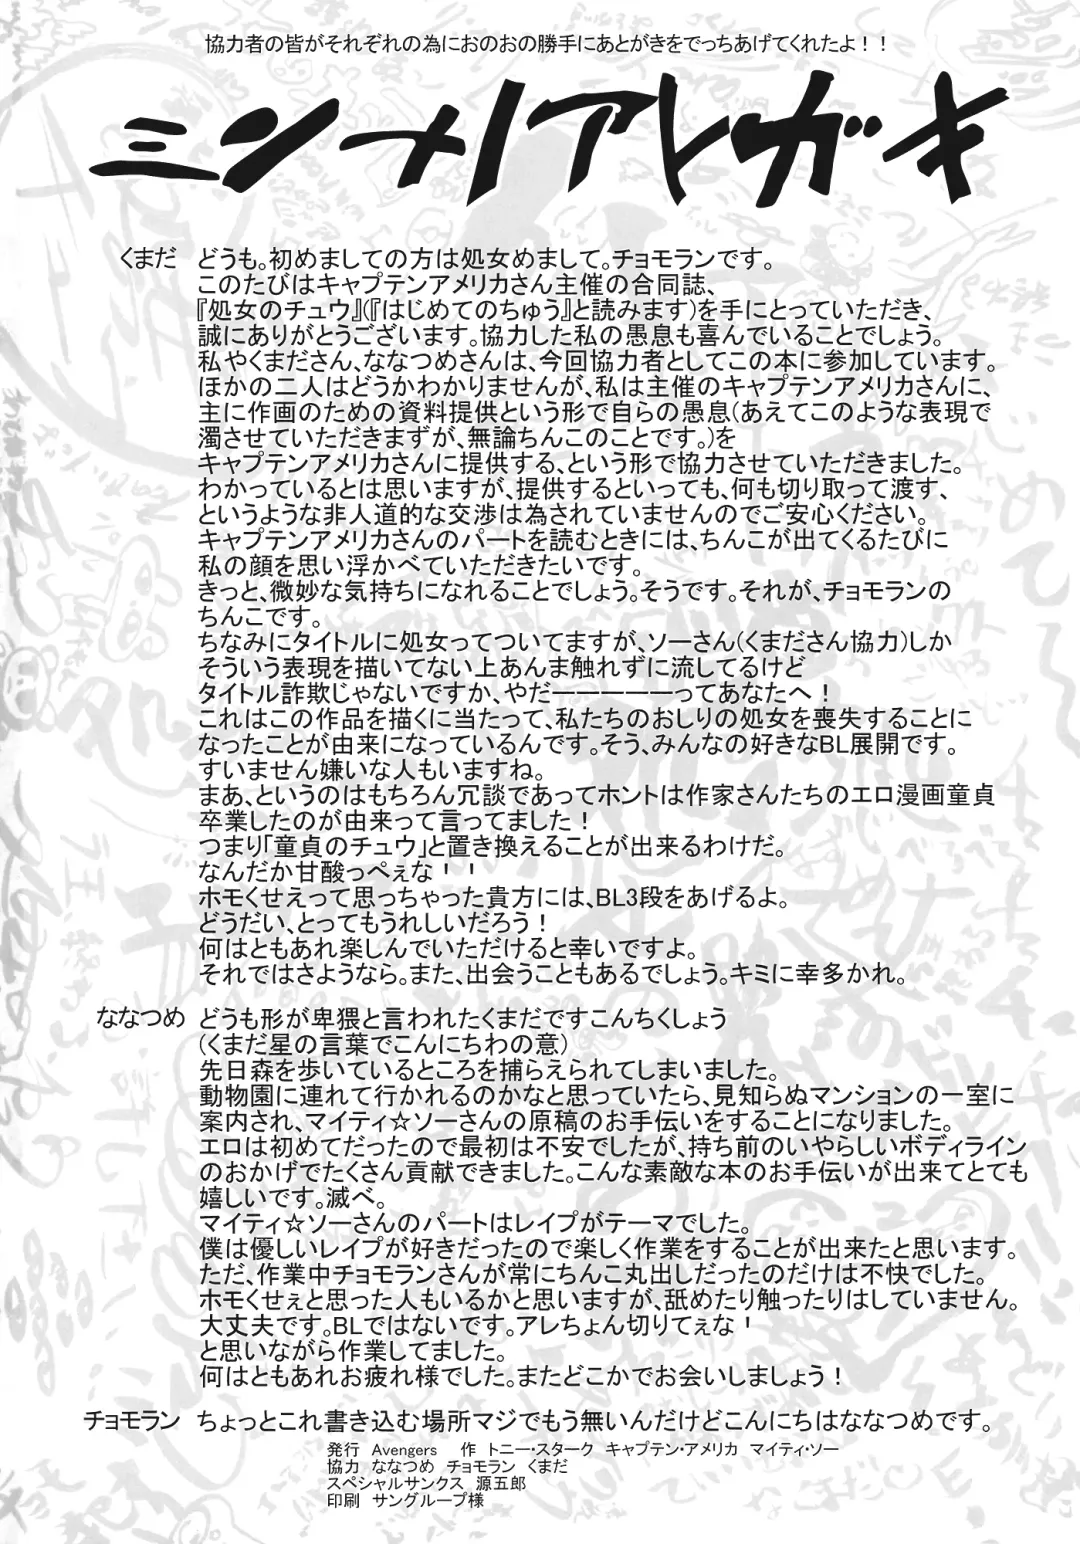 協力者の皆がそれぞれの為におのおの勝手にあとがきをでっちあげてくれたよ！！
ミンナノアトガキ
くまだ どうも。初めましての方は処女めまして。チョモランです。
このたびはキャプテンアメリカさん主催の合同誌、
『処女のチュウ』(『はじめてのちゅう』と読みます)を手にとっていただき、
誠にありがとうございます。協力した私の愚息も喜んでいることでしょう。
私やくまださん、ななつめさんは、今回協力者としてこの本に参加しています。
ほかの二人はどうかわかりませんが、私は主催のキャプテンアメリカさんに、
主に作画のための資料提供という形で自らの愚息(あえてこのような表現で
濁させていただきまずが、無論ちんこのことです。)を
キャプテンアメリカさんに提供する、という形で協力させていただきました。
わかっているとは思いますが、提供するといっても、何も切り取って渡す、
というような非人道的な交渉は為されていませんのでご安心ください。
キャプテンアメリカさんのパートを読むときには、ちんこが出てくるたびに
私の顔を思い浮かべていただきたいです。
きっと、微妙な気持ちになれることでしょう。そうです。それが、チョモランの
ちんこです。
ちなみにタイトルに処女ってついてますが、ソーさん(くまださん協力)しか
そういう表現を描いてない上あんま触れずに流してるけど
タイトル詐欺じゃないですか、やだーーーーーってあなたへ！
これはこの作品を描くに当たって、私たちのおしりの処女を喪失することに
なったことが由来になっているんです。そう、みんなの好きなBL展開です。
すいません嫌いな人もいますね。
まあ、というのはもちろん冗談であってホントは作家さんたちのエロ漫画童貞
卒業したのが由来って言ってました！
つまり｢童貞のチュウ｣と置き換えることが出来るわけだ。
なんだか甘酸っぺぇな！！
ホモくせえって思っちゃった貴方には、BL3段をあげるよ。
どうだい、とってもうれしいだろう！
何はともあれ楽しんでいただけると幸いですよ。
それではさようなら。また、出会うこともあるでしょう。キミに幸多かれ。
ななつめ どうも形が卑猥と言われたくまだですこんちくしょう
(くまだ星の言葉でこんにちわの意)
先日森を歩いているところを捕らえられてしまいました。
動物園に連れて行かれるのかなと思っていたら、見知らぬマンションの一室に
案内され、マイティ☆ソーさんの原稿のお手伝いをすることになりました。
エロは初めてだったので最初は不安でしたが、持ち前のいやらしいボディライン
のおかげでたくさん貢献できました。こんな素敵な本のお手伝いが出来てとても
嬉しいです。滅べ。
マイティ☆ソーさんのパートはレイプがテーマでした。
僕は優しいレイプが好きだったので楽しく作業をすることが出来たと思います。
ただ、作業中チョモランさんが常にちんこ丸出しだったのだけは不快でした。
ホモくせぇと思った人もいるかと思いますが、舐めたり触ったりはしていません。
大丈夫です。BLではないです。アレちょん切りてぇな！
と思いながら作業してました。
何はともあれお疲れ様でした。またどこかでお会いしましょう！
チョモラン ちょっとこれ書き込む場所マジでもう無いんだけどこんにちはななつめです。
発行 Avengers 作 トニー・スターク キャプテン・アメリカ マイティ・ソー
協力 ななつめ チョモラン くまだ
スペシャルサンクス 源五郎
印刷 サングループ様